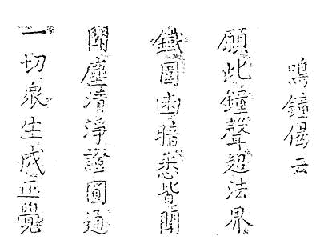 鳴鐘偈云
願此鐘聲超法界
鐵圍幽暗悉皆聞
聞塵清淨證圓通
一切眾生成正覺